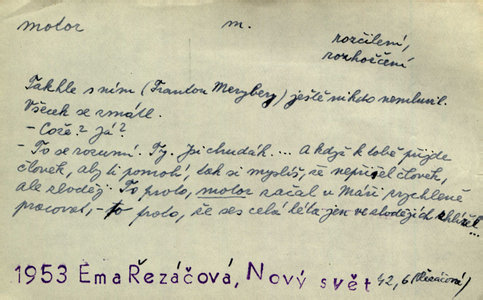 motor m. rozčilení,
rozhořčení
Takhle s ním (Frantou Meryberg) ještě nikdo nemluvil.
Všecek se zmátl.
- Cože? Já?
- To se rozumí. Ty. Jsi chudák... A když k tobě přijde
člověk, aby ti pomohl, tak si myslíš, že nepřišel člověk,
ale zloděj. To proto, motor začal v Máři rychleně
pracovat, - to proto, že ses celá léta jen ve zlodějích shlížel...
1953 Ema Řezáčová, Nový svět 42, 6 (Řezáčová)